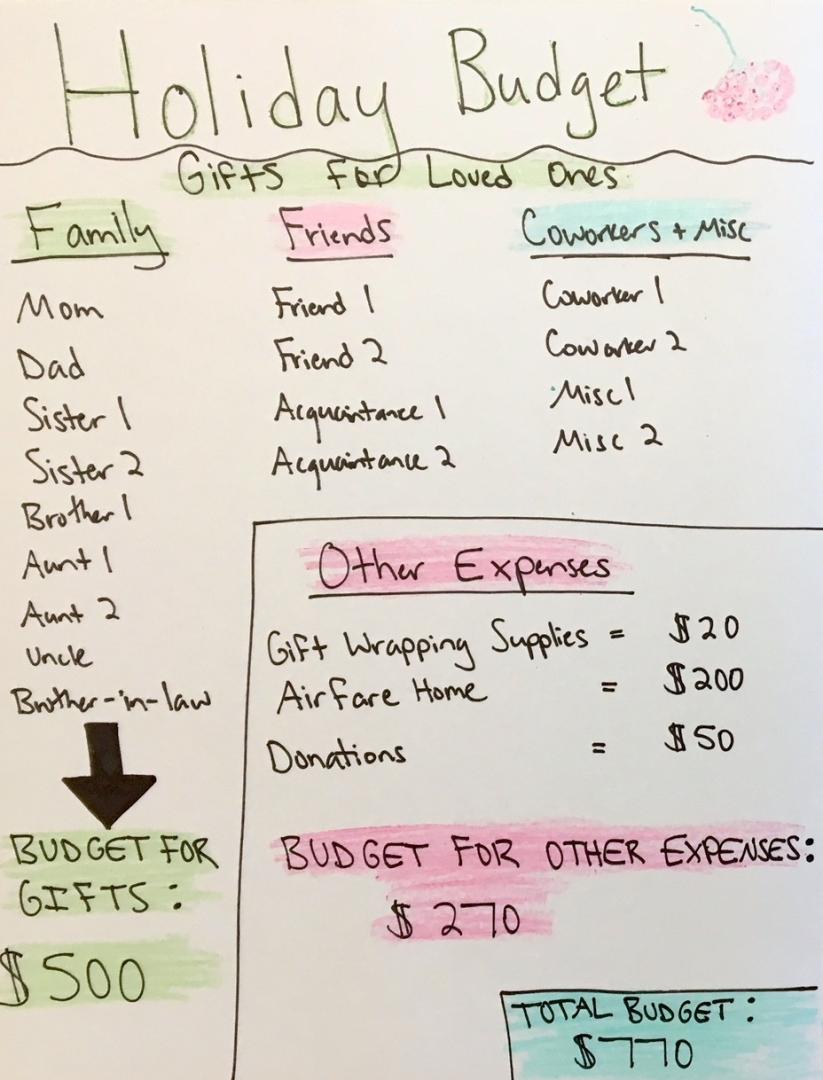 Holiday Budget
Gifts for Loved Ones
Family
Mom
Dad
Sister 1
Sister 2
Brother 1
Aunt 1
Aunt 2
Uncle
Brother-in-law
BUDGET FOR
GIFTS:
$500
Friends
Friend 1
Friend 2
Acquaintance 1
Acquaintance 2
Coworkers + Misc
Coworker 1
Coworker 2
Misc 1
Misc 2
Other Expenses
Gift Wrapping Supplies = $20
Airfare Home = $200
Donations = $50
BUDGET FOR OTHER EXPENSES:
$270
TOTAL BUDGET:
$770